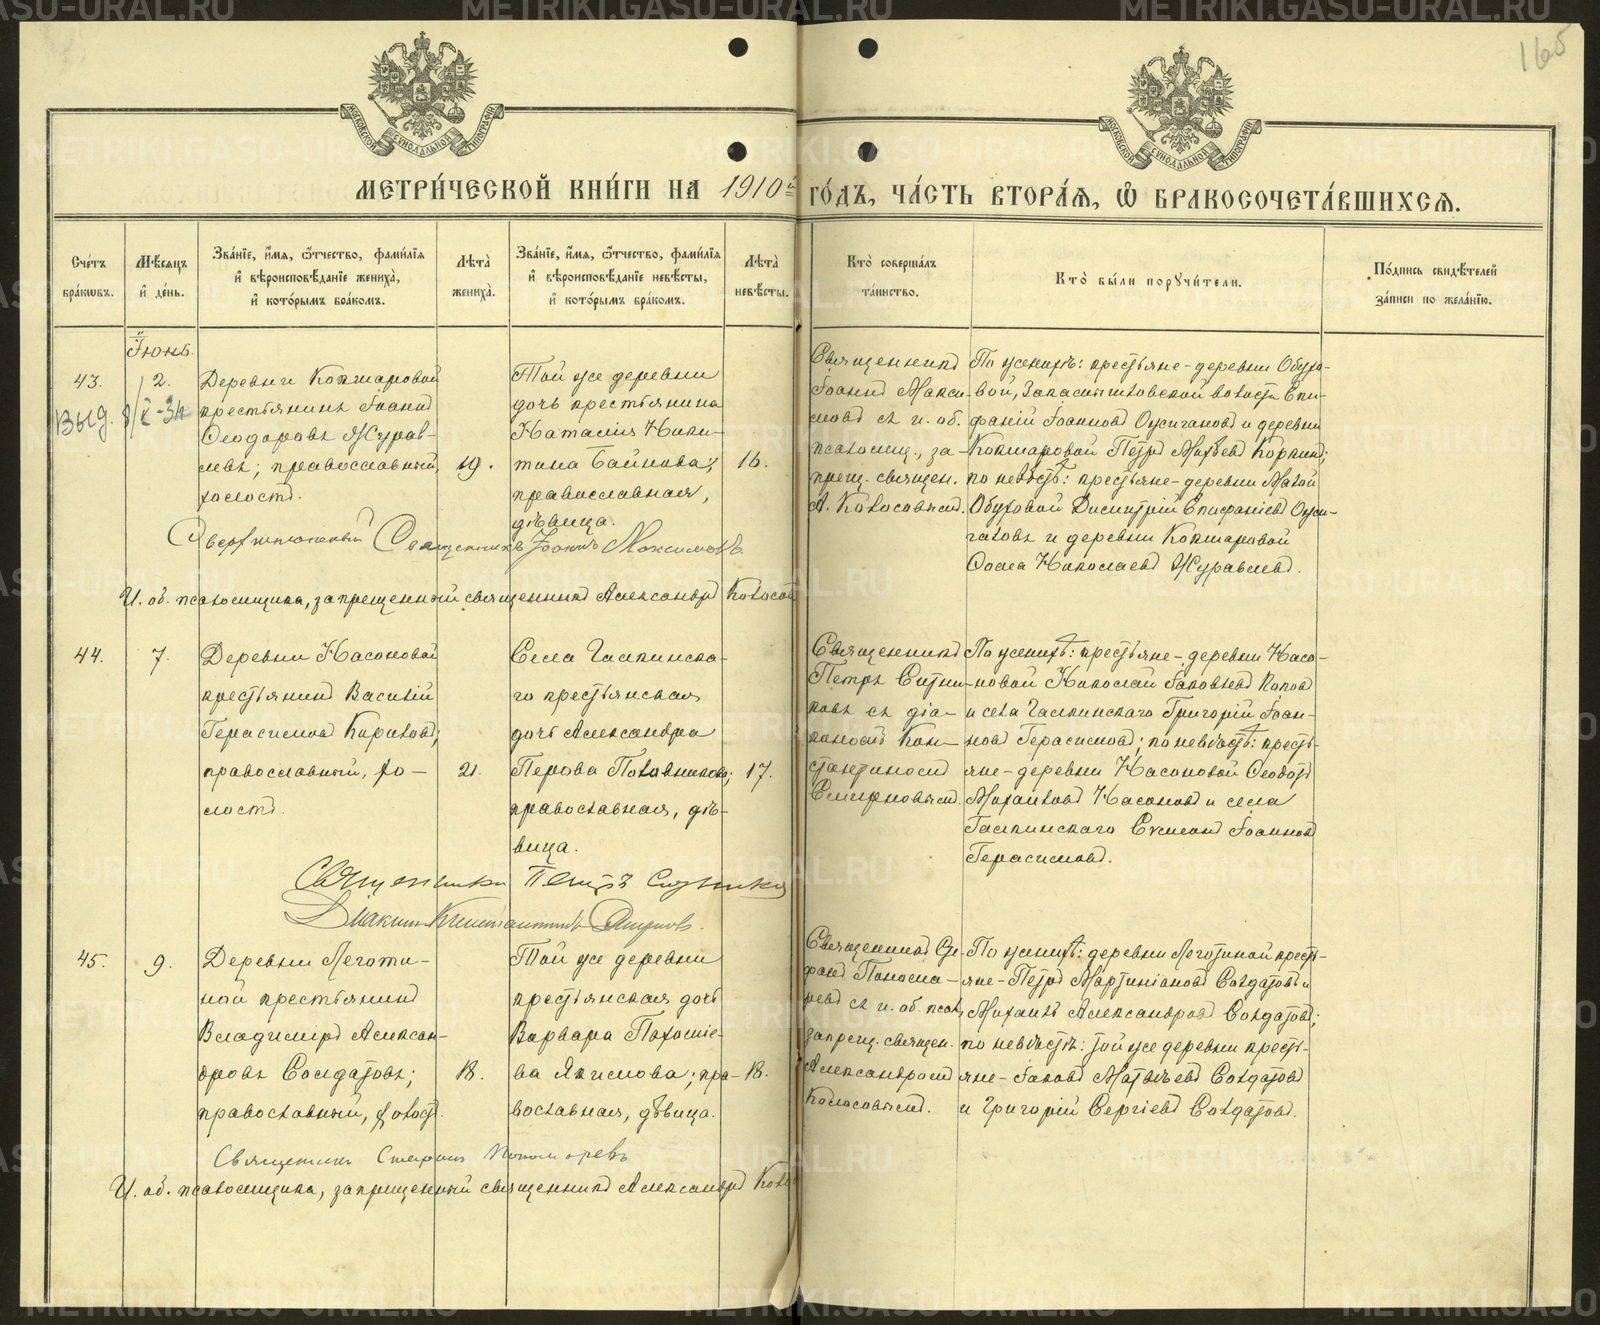 165
МОСКОВСКОЙ СУНОДАЛЬНОЙ ТИПОГРАФІИ
МОСКОВСКОЙ СУНОДАЛЬНОЙ ТИПОГРАФІИ
МЕТРИ́ЧЕСКОЙ КНИ́ГИ НА 1910й ГО́ДЪ, ЧА́СТЬ ВТОРА́Я, Ѡ БРАКОСОЧЕТА́ВШИХСЯ.
Сче́тъ бра́кѡвъ.
Мѣ́сяцъ и де́нь.
Зва́нїе, и́мя, ѻ́тчество, фами́лїя и вѣроисповѣ́данїе жениха̀, и кото́рымъ бра́комъ.
Лѣ́та жениха̀.
Зва́нїе, и́мя, ѻ́тчество, фами́лїя и вѣроисповѣ́данїе невѣ́сты, и кото́рымъ бра́комъ.
Лѣ́та невѣ́сты.
Кто̀ соверша́лъ та́инство.
Кто̀ бы́ли порꙋчи́тели.
По́дпись свидѣ́телей за́писи по жела́нїю.
Іюнь.
43.
2.
Выд.
Деревни Кокшаровой
крестьянинъ Іоаннъ
Ѳеодоровъ Журав-
левъ; православный,
холостъ.
19.
Той же деревни
дочь крестьянина
Наталія Ники-
тина Байнова;
православная,
дѣвица.
16.
Священникъ
Іоаннъ Макси-
мовъ съ и. об.
псаломщ., за-
прещ. священ.
А. Колосовымъ.
По женихѣ: крестьяне-деревни Обухо-
вой, волости Епи-
фаній Іоанновъ и деревни
Кокшаровой Петръ Коркинъ;
по невѣстѣ: крестьяне-деревни Малой
Обуховой Димитрій Епифаніевъ
и деревни Кокшаровой
Ѳома Николаевъ Журавлевъ.
Священникъ Іоаннъ Максимовъ
И. об. псаломщика, запрещенный священникъ Александръ Колосов
44.
7.
Деревни Насоновой
крестьянинъ Василій
Герасимовъ Кириловъ;
православный, хо-
лостъ.
21.
Села Галкинска-
го крестьянская
дочь Александра
Петрова;
православная, дѣ-
вица.
17.
Священникъ
Петръ Ситни-
ковъ съ діа-
кономъ Кон-
стантиномъ
Смирновымъ.
По женихѣ: крестьяне-деревни Насо-
новой Николай Іаковлевъ Поповъ
и села Галкинскаго Григорій Іоан-
новъ Герасимовъ; по невѣстѣ: кресть-
яне-деревни Насоновой Ѳеодотъ
Михаиловъ Насоновъ и села
Галкинскаго Симеонъ Іоанновъ
Герасимовъ.
Священникъ Петръ Ситников
Діаконъ Константинъ Смирновъ.
45.
9.
Деревни Леготи-
ной крестьянинъ
Владиміръ Алексан-
дровъ Солдатовъ;
православный, холостъ.
18.
Той же деревни
крестьянская дочь
Варвара Пахоміе-
ва Якимова; пра-
вославная, дѣвица.
18.
Священникъ Сте-
фанъ Понома-
ревъ съ и. об. псал.,
запрещ. священ.
Александромъ
Колосовымъ.
По женихѣ: деревни Леготиной кресть-
яне-Петръ Мартиніановъ Солдатовъ и
Михаилъ Александровъ Солдатовъ;
по невѣстѣ: той же деревни кресть-
яне-Іаковъ Матвѣевъ Солдатовъ
и Григорій Сергіевъ Солдатовъ.
Священникъ Стефанъ Пономаревъ
И. об. псаломщика, запрещенный священникъ Александръ Коло
METRIKI.GASU-URAL.RU